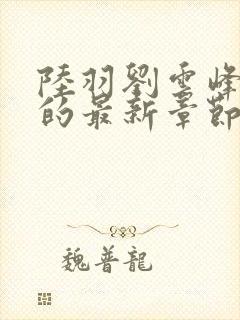 陸羽劉雲峰
的最新章節
魏普龍